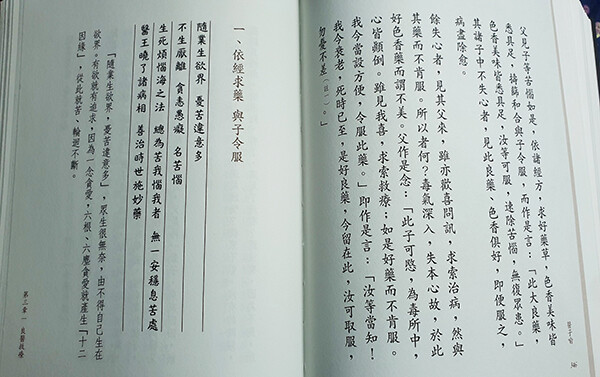 父見子等苦惱如是,依諸經方,求好藥草,色香美味皆
悉具足,擣篩和合與子令服,而作是言:「此大良藥,
色香美味皆悉具足,汝等可服,速除苦惱,無復眾患。」
其諸子中不失心者,見此良藥、色香俱好,即便服之,
病盡除愈。
餘失心者,見其父來,雖亦歡喜問訊,求索治病,然與
其藥而不肯服。所以者何?毒氣深入,失本心故,於此
好色香藥而謂不美。父作是念:「此子可愍,為毒所中,
心皆顛倒。雖見我喜,求索救療;如是好藥而不肯服。
我今當設方便,令服此藥。」即作是言:「汝等當知!
我今衰老,死時已至,是好良藥,今留在此,汝可取服,
勿憂不差(註一)。」
醫子喻
一、依經求藥 與子令服
隨業生欲界 憂苦違意多
不生厭離 貪恚愚癡 名苦惱
生死煩惱海之法 總為苦我惱我者 無一安穩息苦處
醫王曉了諸病相 善治時世施妙藥
「隨業生欲界,憂苦違意多」,眾生很無奈,由不得自己生在
欲界。有欲就有追求,因為一念貪愛,六根、六塵貪愛就產生「十二
因緣」,從此就苦、輪迴不斷。
第二章——良醫救療